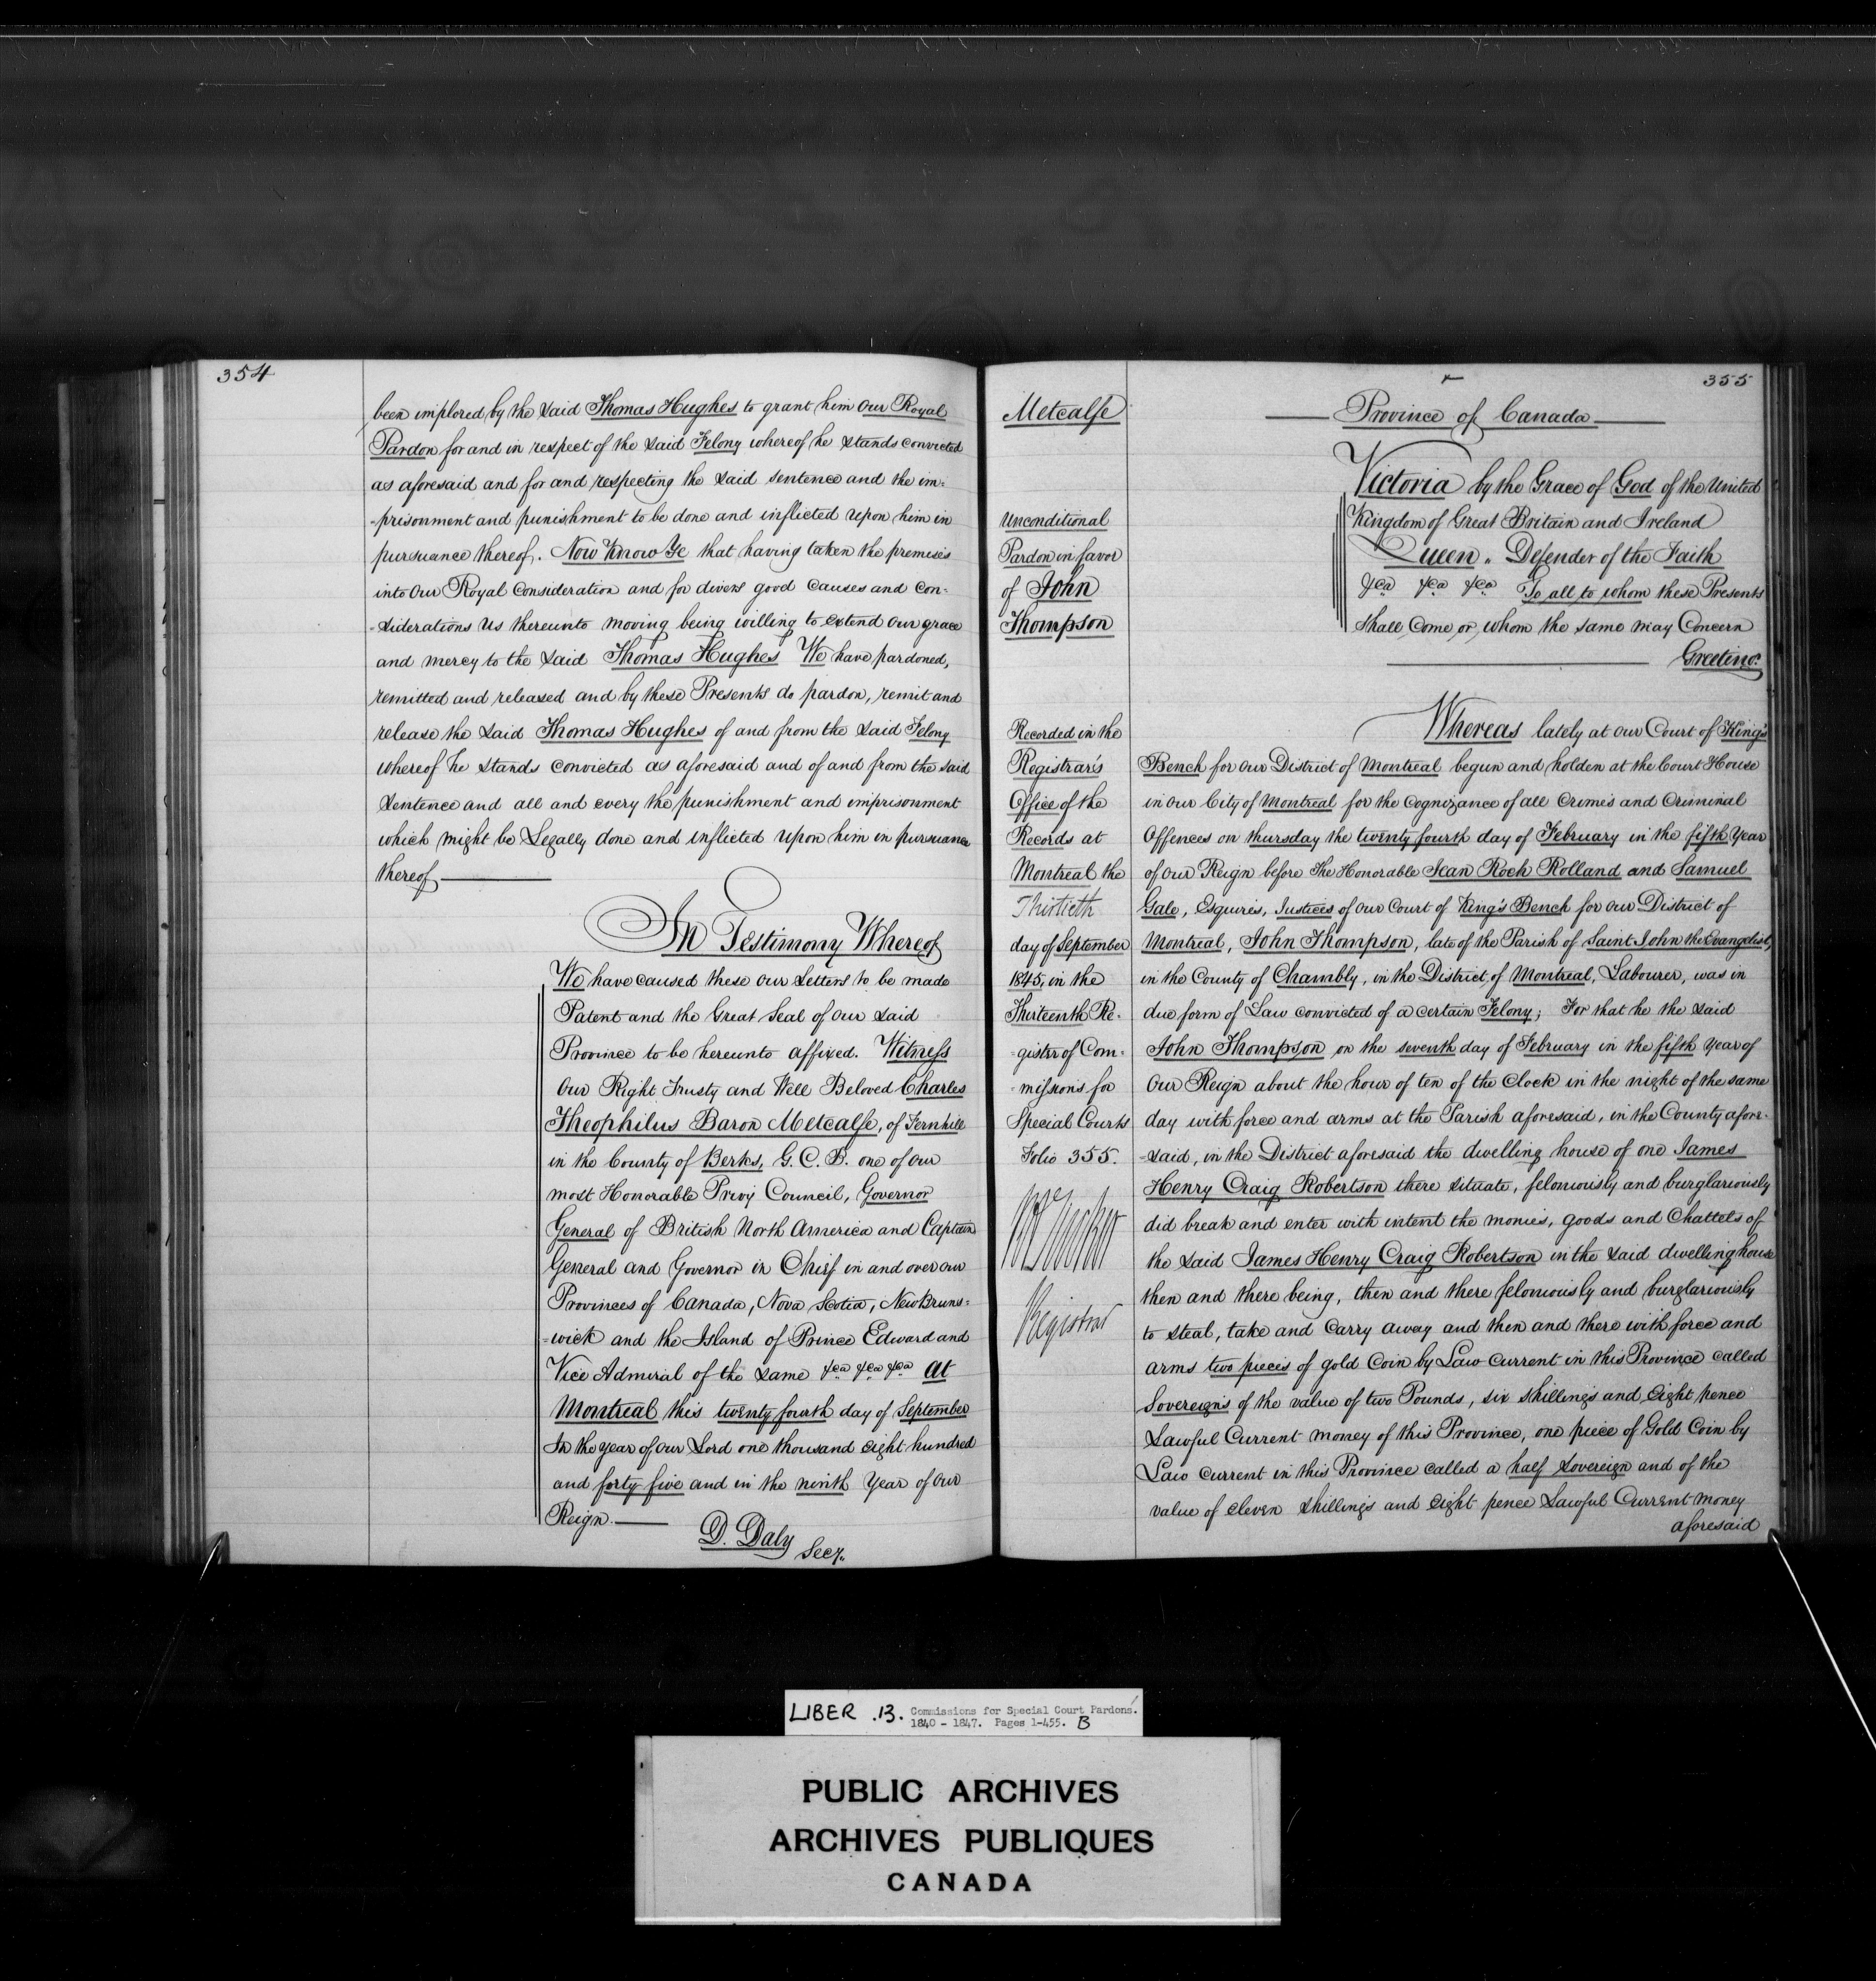 354
been implored by the said Thomas Hughes to grant him Our Royal
Pardon for and in respect of the said Felony whereof he stands convicted
as aforesaid and for and respecting the said sentence and the im=
=prisonment and punishment to be done and inflicted upon him in
pursuance thereof. Now Know Ye that having taken the premises
into Our Royal Consideration and for divers good Causes and Con=
=siderations Us thereunto moving being willing to extend Our grace
and mercy to the said Thomas Hughes We have pardoned,
remitted and released and by these Presents do pardon, remit and
release the said Thomas Hughes of and from the said Felony
whereof he stands convicted as aforesaid and of and from the said
Sentence and all and every the punishment and imprisonment
which might be Legally done and inflicted upon him in pursuance
thereof
In Testimony Whereof
We have caused these Our Letters to be made
Patent and the Great Seal of Our said
Province to be hereunto affixed. Witness
Our Right Trusty and Well Beloved Charles
Theophilus Baron Metcalfe, of Fernhill
in the County of Berks, G.C.B. one of Our
most Honorable Privy Council, Governor
General of British North America and Captain
General and Governor in Chief in and over our
Provinces of Canada, Nova Scotia, New Bruns=
=wick and the Island of Prince Edward and
Vice Admiral of the same &ca &ca &ca At
Montreal this twenty fourth day of September
In the year of Our Lord one thousand eight hundred
and forty five and in the ninth Year of Our
Reign.
D. Daly
Secy.
Metcalfe
Unconditional
Pardon in favor
of John
Thompson
Recorded in the
Registrar's
Office of the
Records at
Montreal the
Thirtieth
day of September
1845, in the
Thirteenth Re=
=gister of Com=
=missions for
Special Courts
Folio 355.
Registrar
355
Province of Canada
Victoria by the Grace of God of the United
Kingdom of Great Britain and Ireland
Queen, Defender of the Faith
&ca &ca &ca To all to whom these Presents
shall Come or whom the same may Concern
Greeting:
Whereas lately at Our Court of King's
Bench for Our District of Montreal begun and holden at the Court House
in Our City of Montreal for the Cognizance of all Crimes and Criminal
Offences on thursday the twenty fourth day of February in the fifth Year
of Our Reign before The Honorable Jean Roch Rolland and Samuel
Gale, Esquires, Justices of Our Court of King's Bench for Our District of
Montreal, John Thompson, late of the Parish of Saint John the Evangelist,
in the County of Chambly, in the District of Montreal, Labourer, was in
due form of Law convicted of a certain Felony; For that he the said
John Thompson on the seventh day of February in the fifth Year of
Our Reign about the hour of ten of the Clock in the night of the same
day with force and arms at the Parish aforesaid, in the County afore=
=said, in the District aforesaid the dwelling house of one James
Henry Craig Robertson there situate, feloniously and burglariously
did break and enter with intent the monies, goods and Chattels of
the said James Henry Craig Robertson in the said dwelling house
then and there being, then and there feloniously and burglariously
to steal, take and Carry away and then and there with force and
arms two pieces of gold Coin by Law Current in this Province called
Sovereigns of the value of two Pounds, six shillings and Eight pence
Lawful Current money of this Province, one piece of Gold Coin by
Law Current in this Province called a half Sovereign and of the
value of eleven shillings and eight pence Lawful Current Money
aforesaid
LIBER .13. Commissions for Special Court Pardons.
1840 - 1847. Pages 1-455. B
PUBLIC ARCHIVES
ARCHIVES PUBLIQUES
CANADA